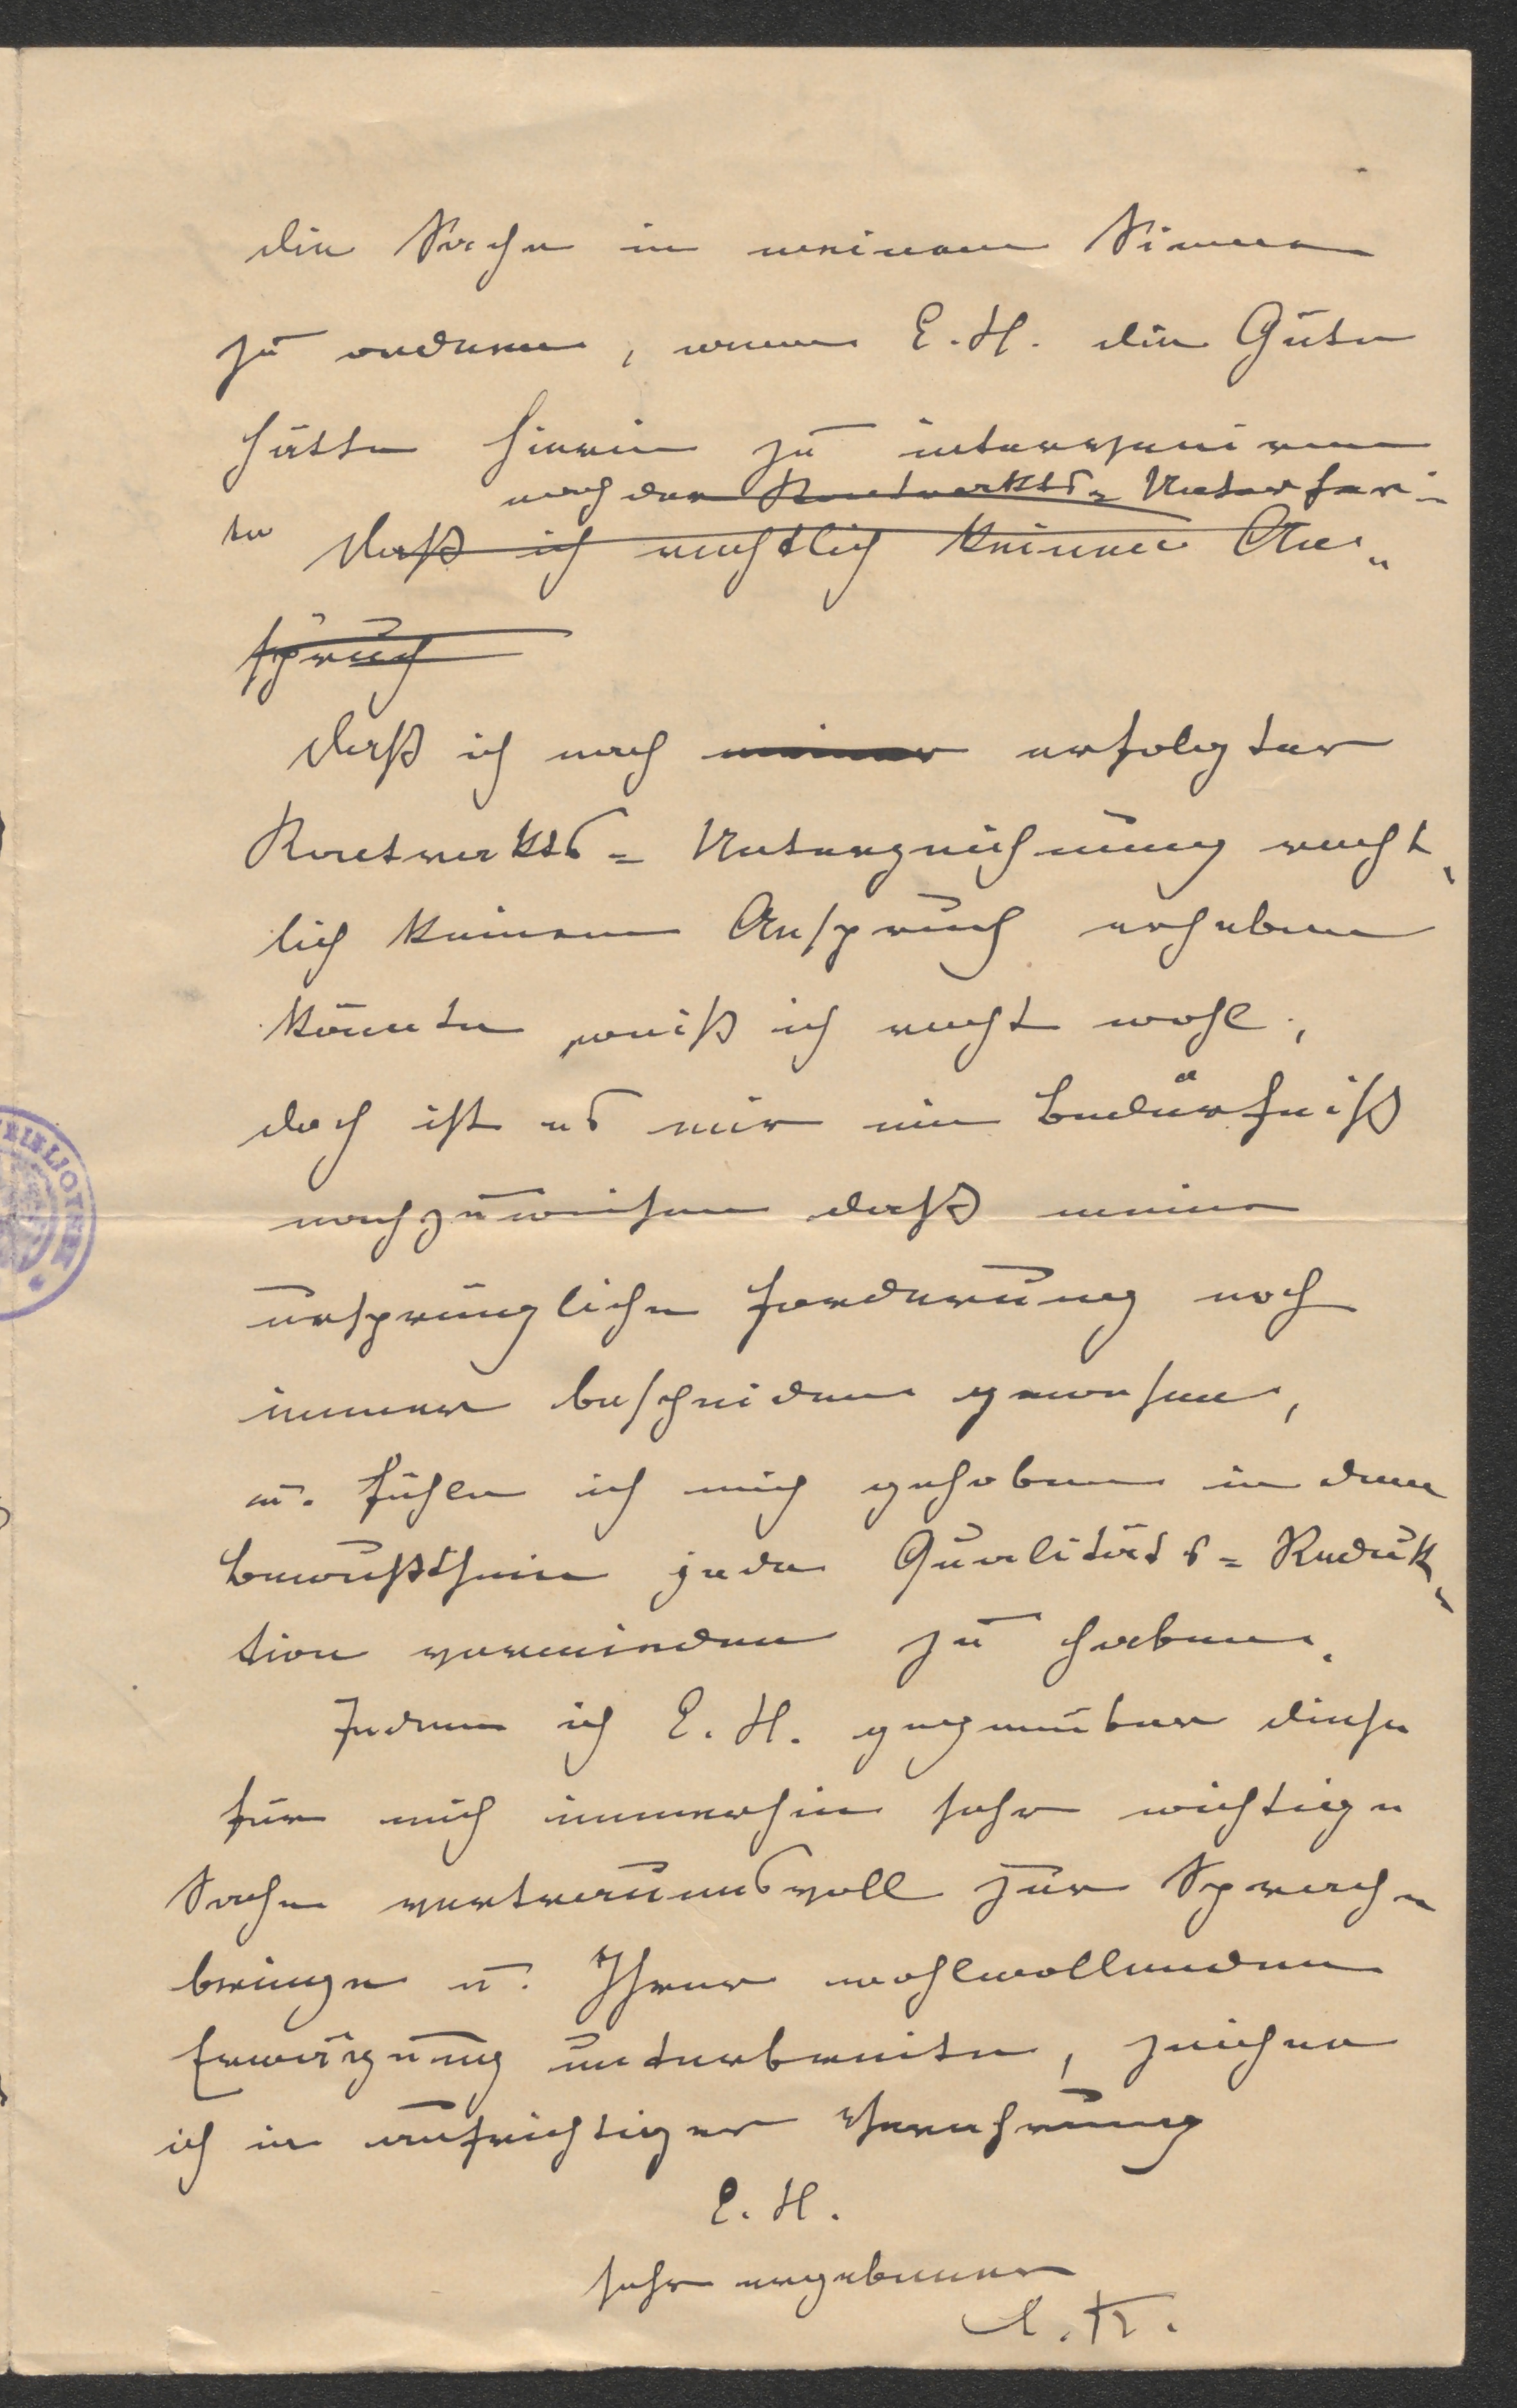 die Sache in meinem Sinne
zu ordnen, wenn E. H. die Güte
hätte hierin zu interveniren
nach der Kontrakts=Unterfer=
te daß ich rechtlich keinen An=
spruch
daß ich nach meiner erfolgter
Kontrakts=Unterzeichnung recht
lich keinen Anspruch erheben
könnte, weiß ich recht wohl;
doch ist es mir ein Bedürfniß
nachzuweisen daß meine
ursprüngliche Forderung noch
immer bescheiden gewesen,
u. fühle ich mich gehoben in dem
Bewußtsein jede Qualitäts=Reduk
tion vermieden zu haben.
Indem ich E. H. gegenüber diese
für mich immerhin sehr wichtige
Sache vertrauensvoll zur Sprache
bringe u. Ihrer wohlwollenden
Erwägung unterbreite, zeichne
ich in aufrichtiger Verehrung
E. H.
sehr ergebener
BIBLIOTHEK